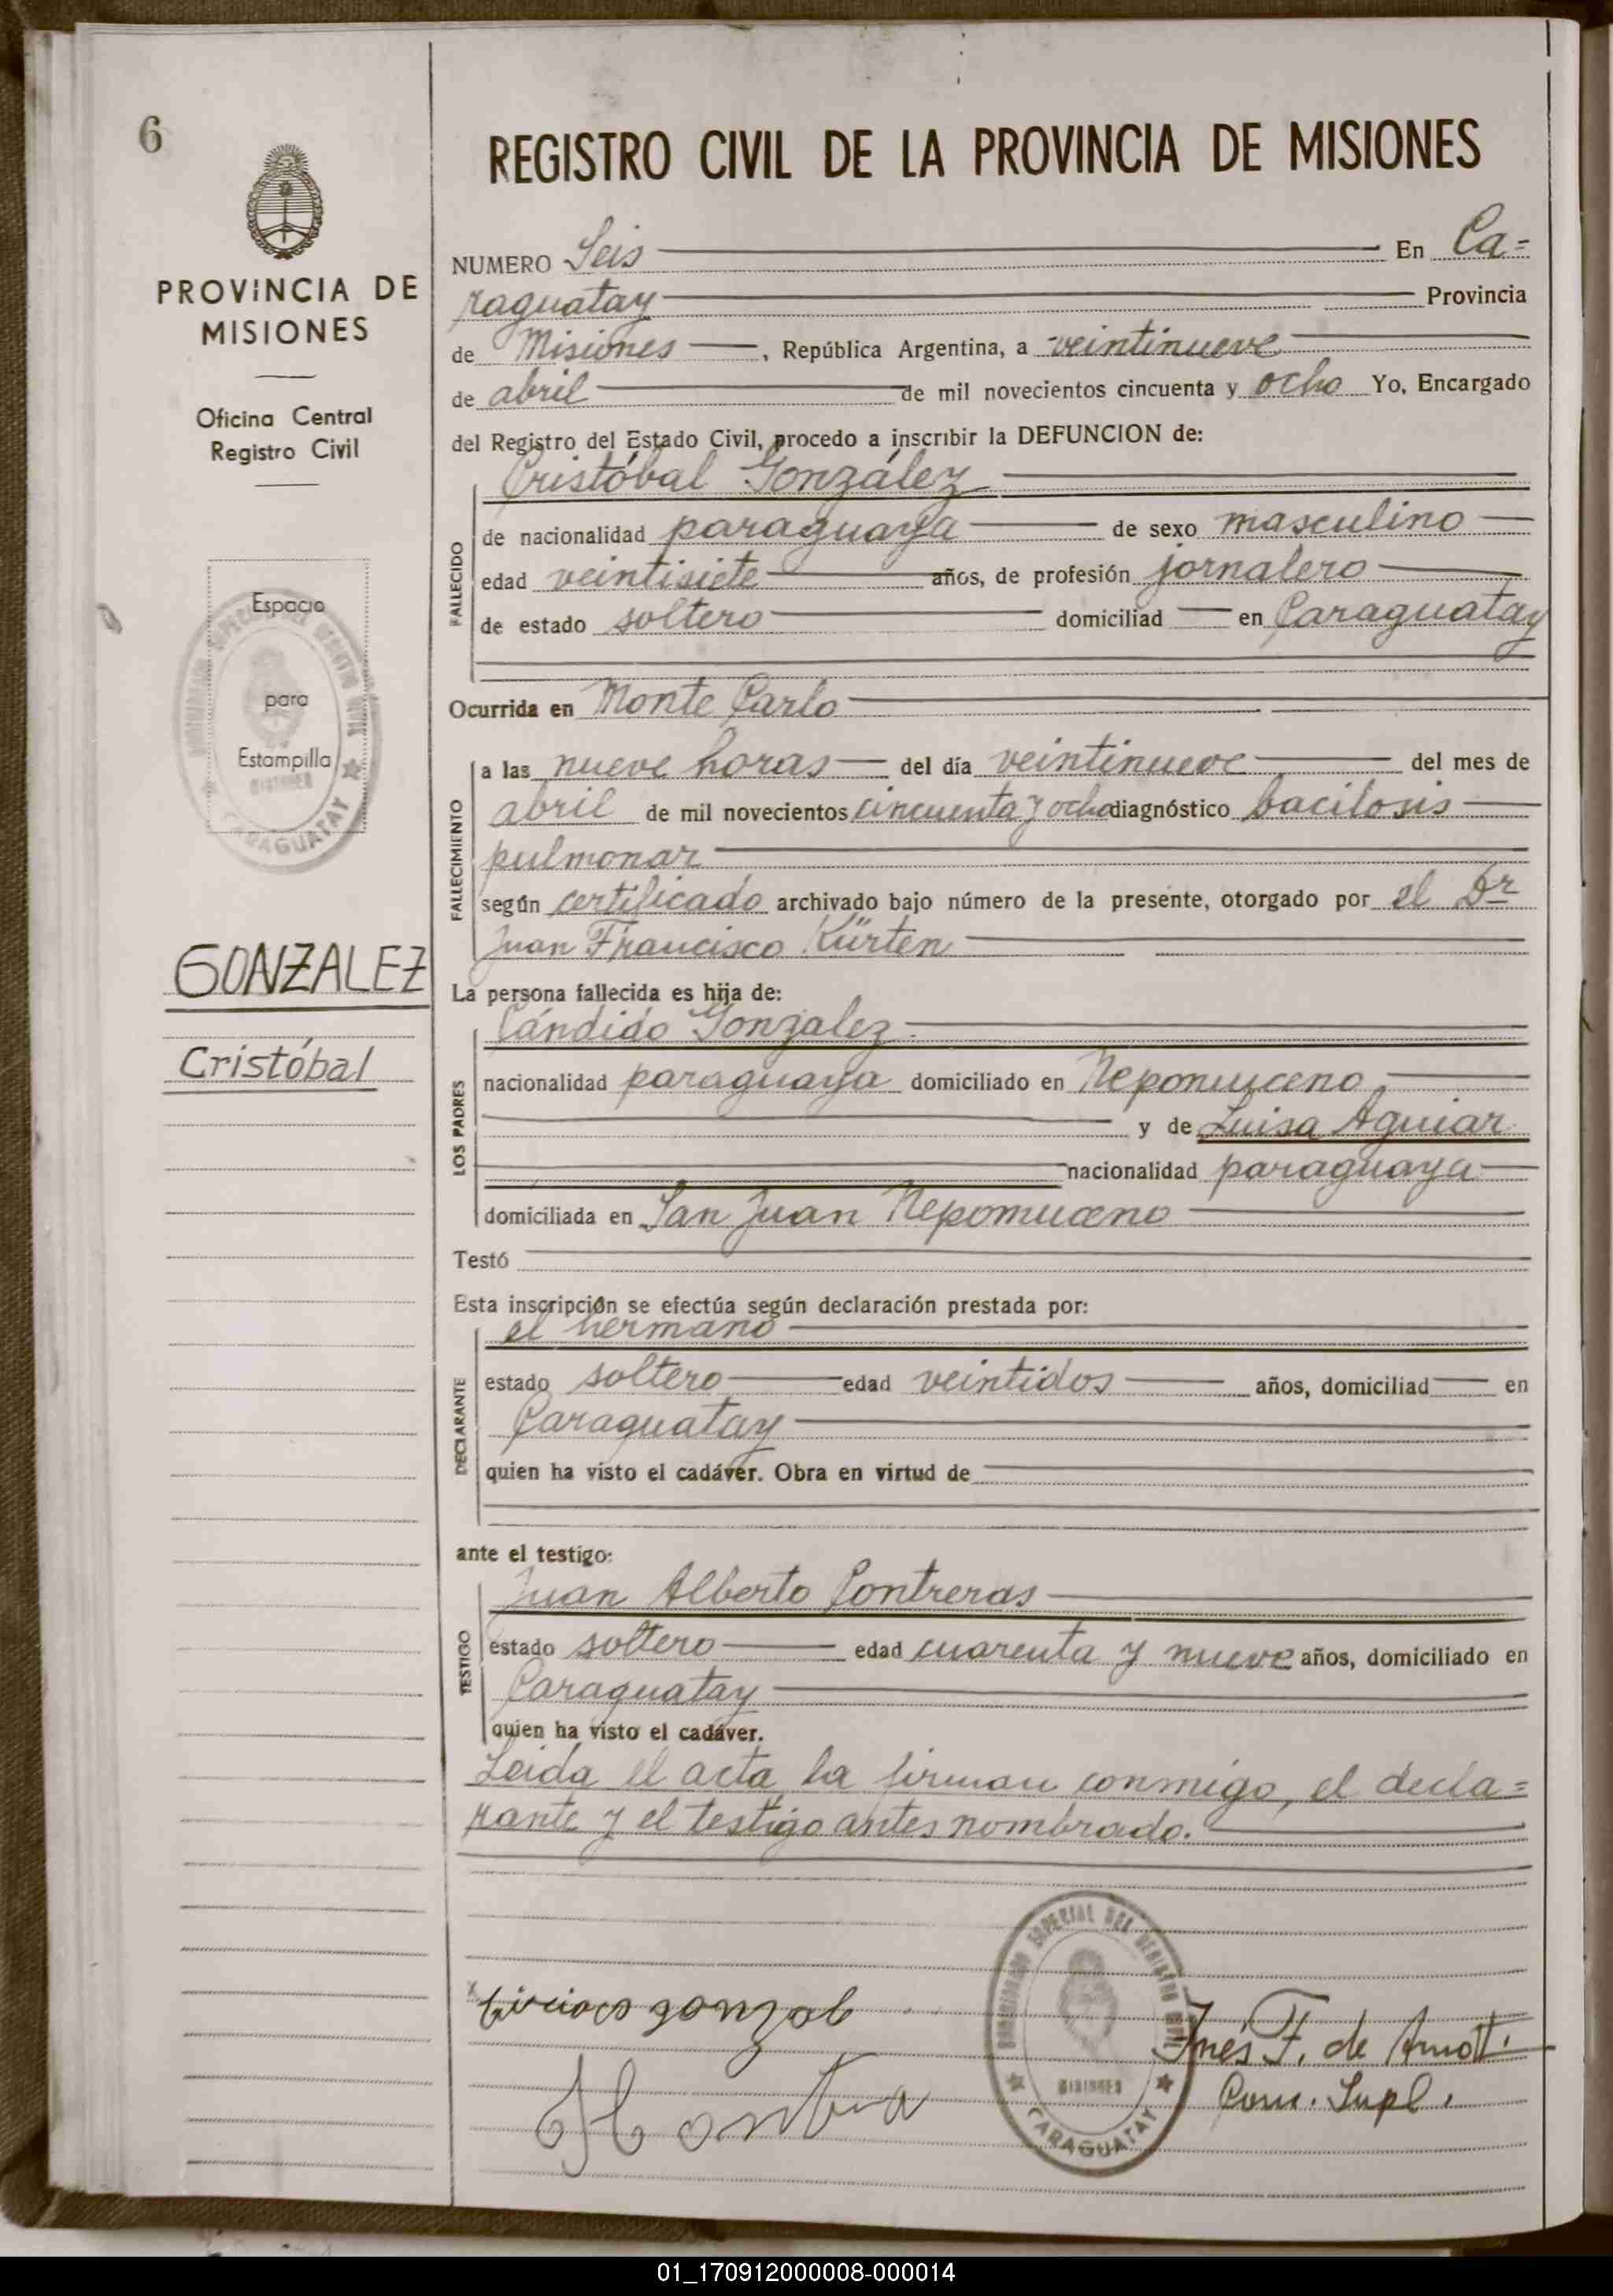 6
PROVINCIA DE
MISIONES
Oficina Central
Registro Civil
Espacio
para
Estampilla
MISIONES
CARAGUATAY
GONZALEZ
Cristóbal
REGISTRO CIVIL DE LA PROVINCIA DE MISIONES
NUMERO Seis En Ca=
raguatay Provincia
de Misiones, República Argentina, a veintinueve
de abril de mil novecientos cincuenta y ocho Yo, Encargado
del Registro del Estado Civil, procedo a inscribir la DEFUNCION de:
Cristóbal González
FALLECIDO
de nacionalidad paraguaya de sexo masculino
edad veintisiete años, de profesión jornalero
de estado soltero domiciliad en Caraguatay
Ocurrida en Monte Carlo
FALLECIMIENTO
a las nueve horas del día veintinueve del mes de
abril de mil novecientos cincuenta y ocho diagnóstico bacilosis
pulmonar
según certificado archivado bajo número de la presente, otorgado por el Dr
Juan Francisco Kürten
La persona fallecida es hija de:
Cándido Gonzalez
LOS PADRES
nacionalidad paraguaya domiciliado en Nepomuceno
y de Luisa Aguiar
nacionalidad paraguaya
domiciliada en San Juan Nepomuceno
Testó
Esta inscripción se efectúa según declaración prestada por:
el hermano
DECLARANTE
estado soltero edad veintidos años, domiciliad en
Caraguatay
quien ha visto el cadáver. Obra en virtud de
ante el testigo:
Juan Alberto Contreras
TESTIGO
estado soltero edad cuarenta y nueve años, domiciliado en
Caraguatay
quien ha visto el cadáver.
Leida el acta la firman conmigo, el decla=
rante y el testigo antes nombrado.
COMISIONADO ESPECIAL DEL REGISTRO CIVIL
MISIONES
CARAGUATAY
Inés F. de
Com. Supl.
01_170912000008-000014